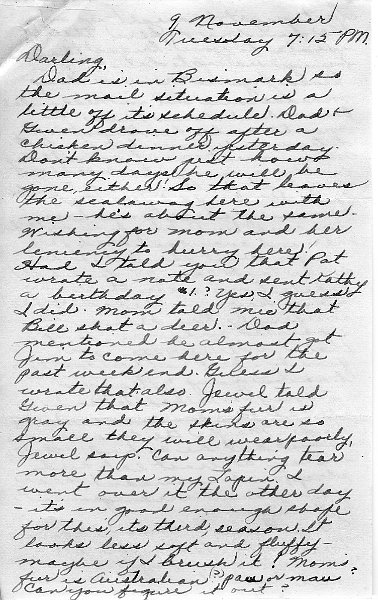 9 November
Tuesday 7:15 P.M.
Darling,
Dad is in Bismark so
the mail situation is a
little off its schedule. Dad &
Gwen drove off after a
chicken dinner yesterday.
Don't know just how
many days he will be
gone, either! So that leaves
the scalawag here with
me - he's about the same.
Wishing for mom and her
leniency to hurry here!
Had I told you that Pat
wrote a note and sent Kathy
a birthday $1.? Yes, I guess
I did. Mom told me that
Bill shot a deer. - Dad
mentioned he almost got
Jim to come here for the
past week end. Guess I
wrote that also. Jewel told
Gwen that Moms fur is
gray and the skins are so
small they will wear poorly,
Jewel says. Can anything tear
more than my Lapin. I
went over it the other day
- it's in good enough shape
for this, its third season. It
looks less soft and fluffy -
maybe if I brush it! Moms
fur is Australian ? paw or maw
Can you figure it out?